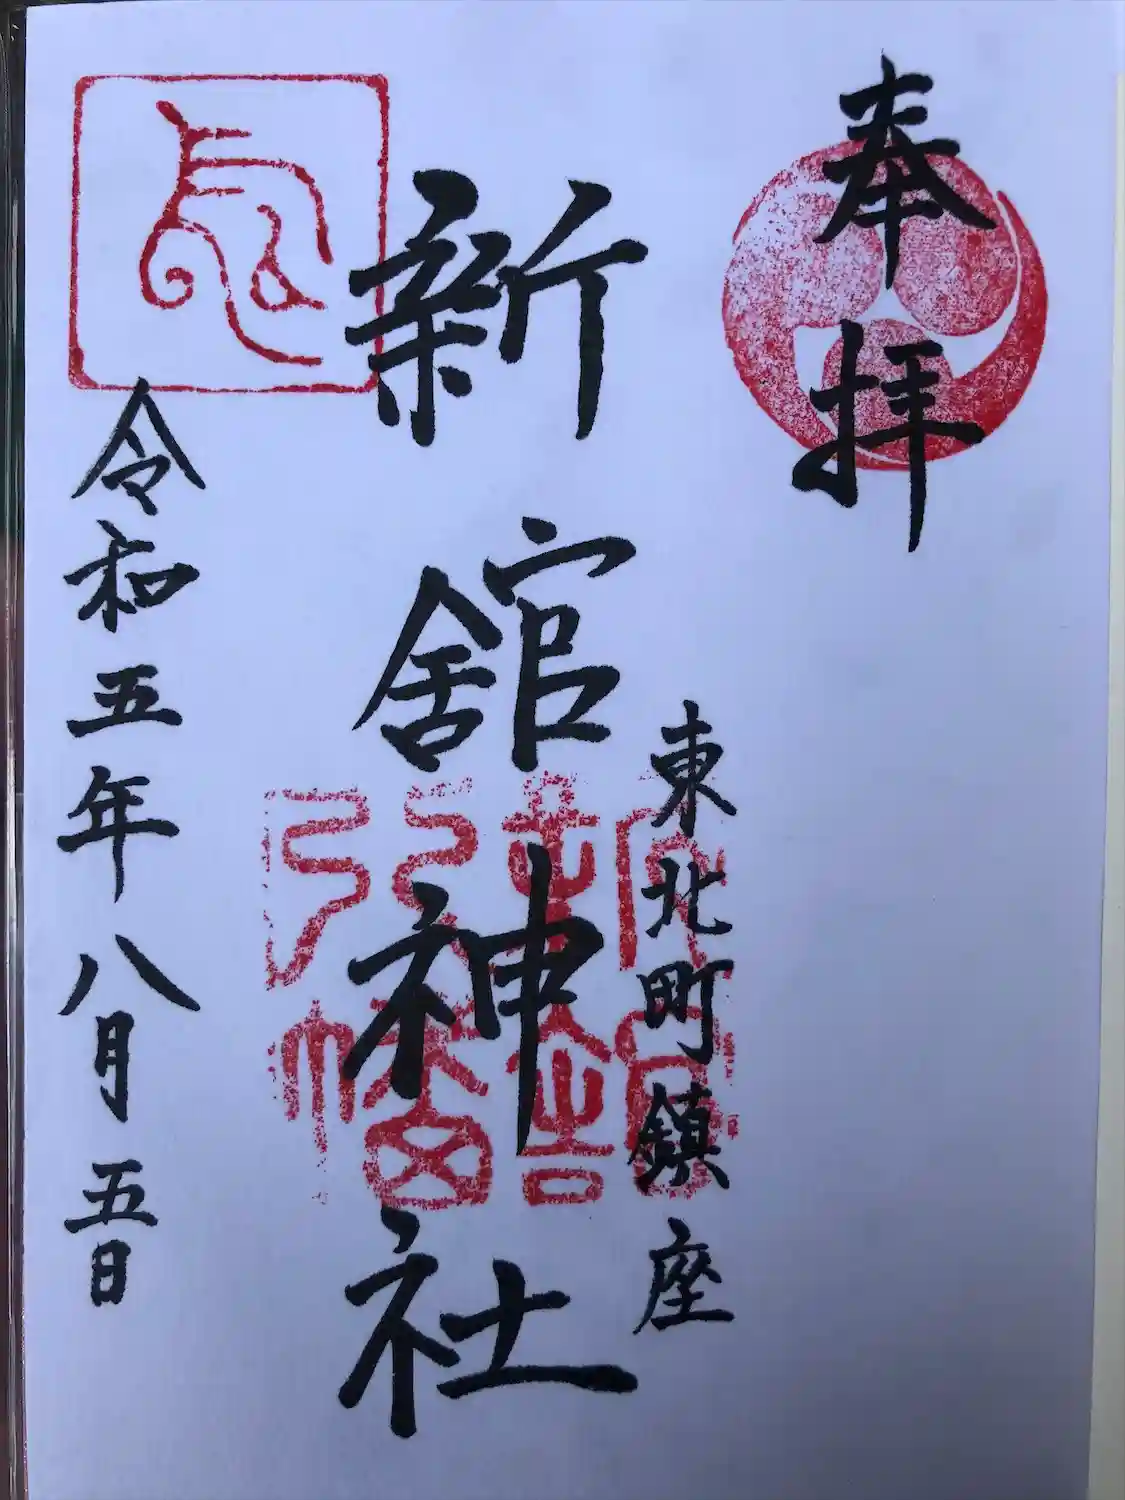 奉拝
東北町鎮座
新舘神社
令和五年八月五日